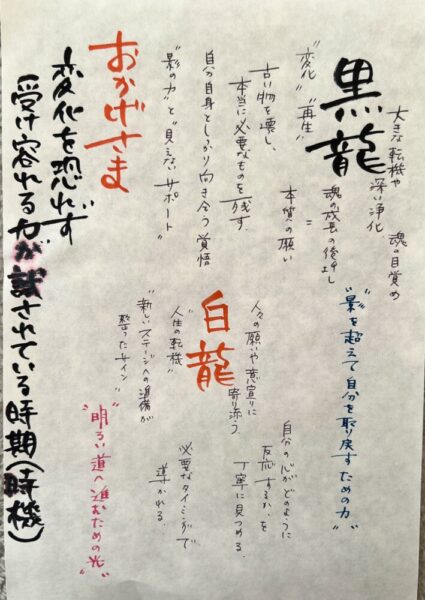 黒龍
大きな転機や
深い浄化
魂の目覚め
魂の成長の後押し
＝
本質への願い
"変化" "再生"
古い物を壊し、
本当に必要なものを残す
自分自身としっかり向き合う覚悟
"影の力"と"見えないサポート"
おかげさま
変化を恐れず
受け容れる力が試されている時期(時機)
"影を超えて自分を取り戻すための力"
白龍
人々の願いや意宣りに
寄り添う
"人生の転機"
"新しいステージへの準備が
整ったサイン"
自分の心がどのように
反応するか、を
丁寧に見つめる、
必要なタイミングで
導かれる、
"明るい道へ進むための光"